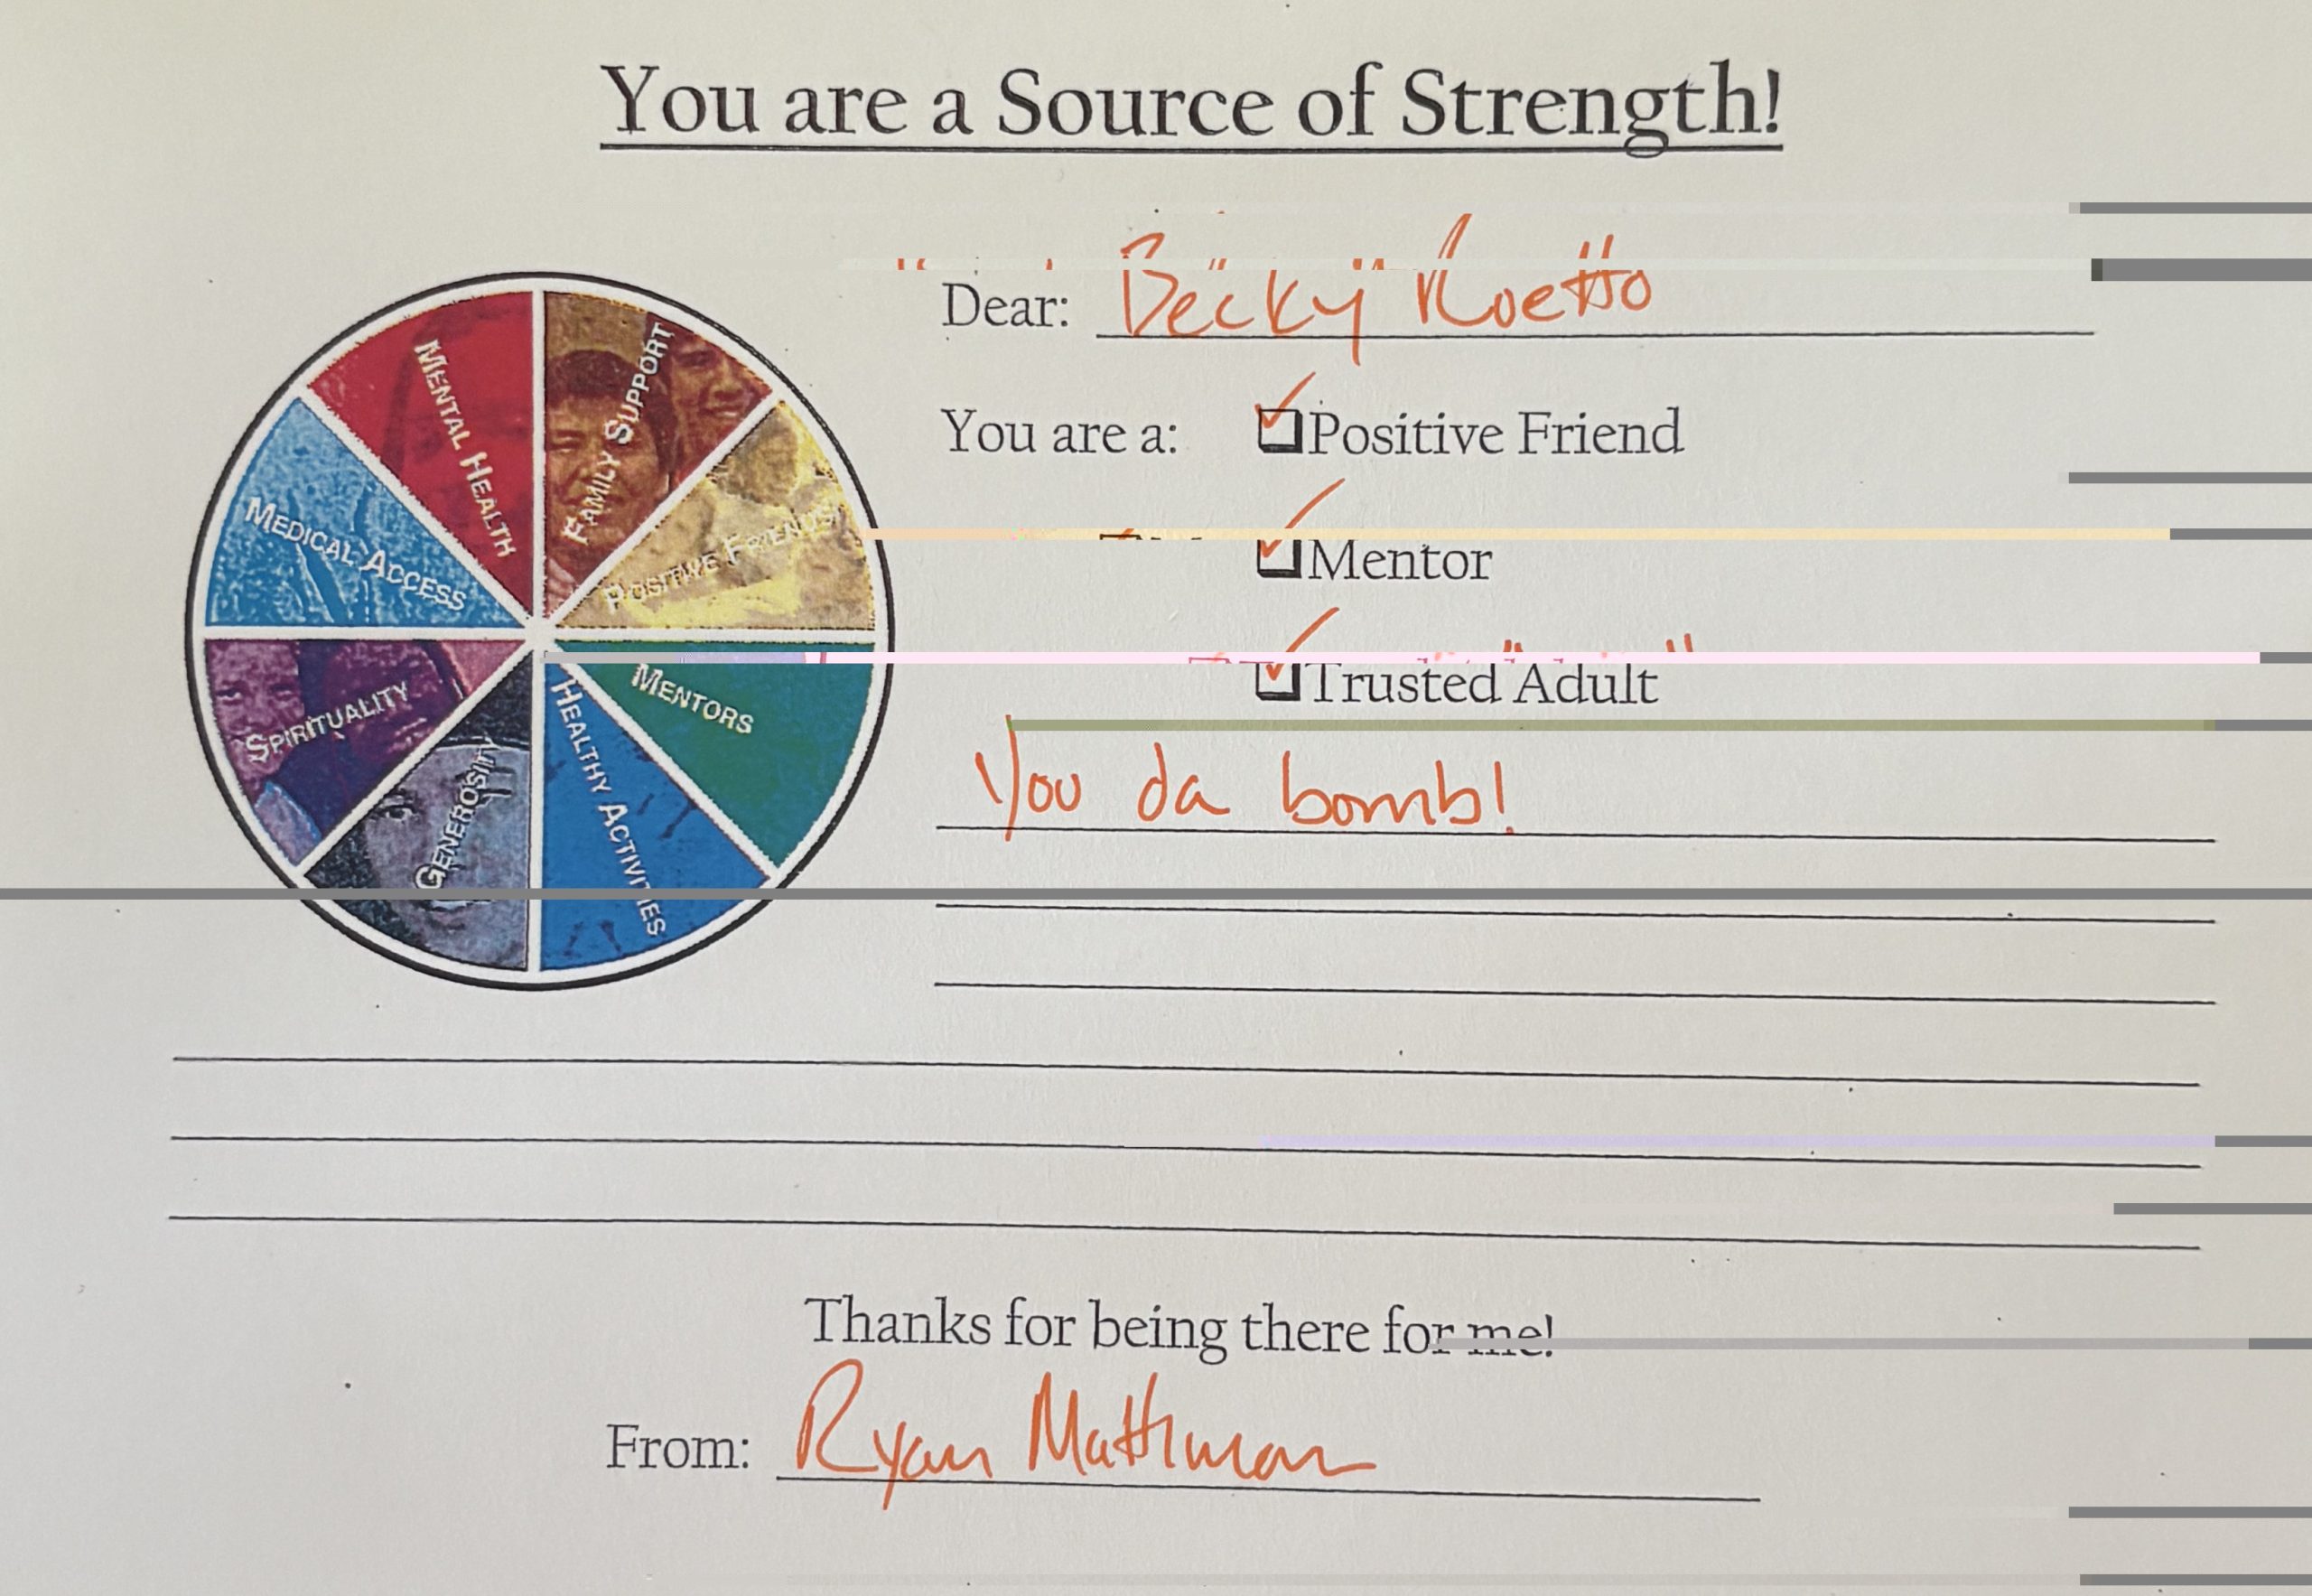 You are a Source of Strength!
Dear: Becky Roetto
You are a: Positive Friend
Mentor
Trusted "Adult"
You da bomb!
MENTAL HEALTH
FAMILY SUPPORT
POSITIVE FRIENDS
MENTORS
HEALTHY ACTIVITIES
GENEROSITY
SPIRITUALITY
MEDICAL ACCESS
Thanks for being there for me!
From: Ryan